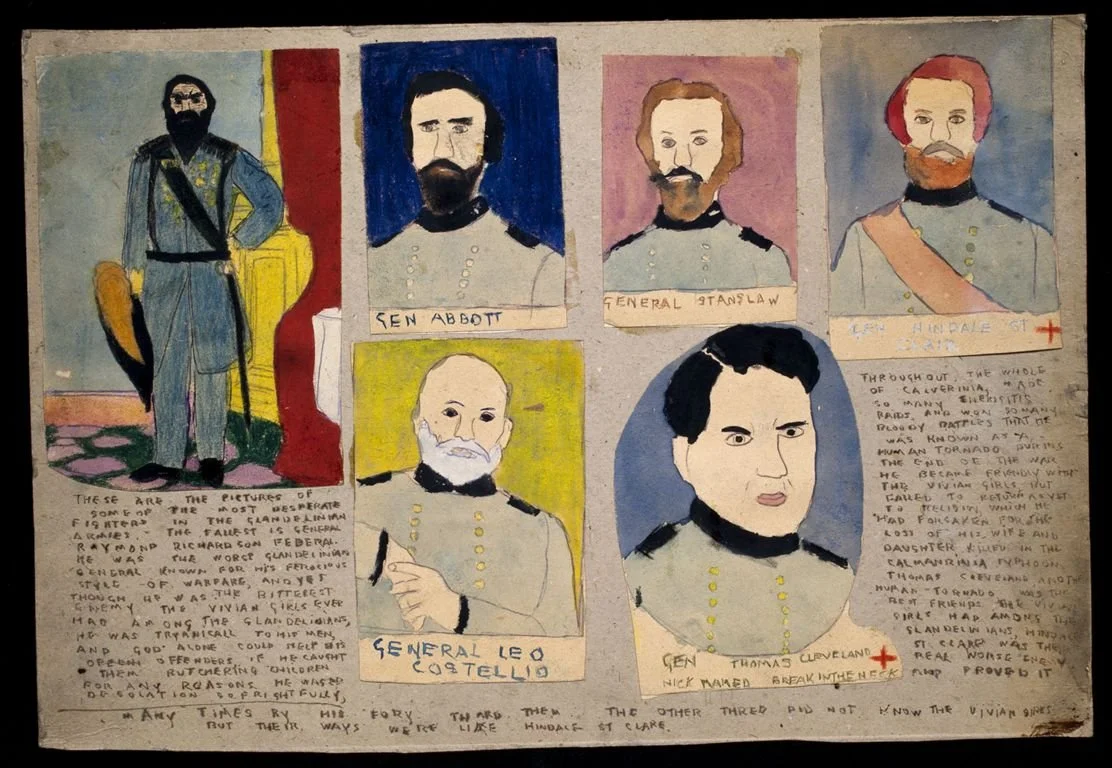 GEN ABBOTT
GENERAL STANSLAW
GEN HINDALE ST
CLAIR
GENERAL LEO
COSTELLIO
GEN THOMAS CLEVELAND
NICK NAMED BREAKINTHENECK
THESE ARE THE PICTURES OF
SOME OF THE MOST DESPERATE
FIGHTERS IN THE GLANDELINIAN
ARMIES. THE TALLEST IS GENERAL
RAYMOND RICHARDSON FEDERAL.
HE WAS THE WORST GLANDELINIAN
GENERAL KNOWN FOR HIS FEROCIOUS
STYLE OF WARFARE, AND YET
THOUGH HE WAS THE BITTEREST
ENEMY THE VIVIAN GIRLS EVER
HAD AMONG THE GLANDELINIANS,
HE WAS TRYANICALL TO HIS MEN,
AND GOD ALONE COULD HELP HIS
OFFENDERS, IF HE CAUGHT
THEM BUTCHERING CHILDREN
FOR ANY REASONS HE
DESOLATION SO FRIGHTFULLY,
THROUGH OUT, THE WHOLE
OF CALVERINIA, MADE
SO MANY
RAIDS, AND WON SO MANY
BLOODY BATTLES THAT HE
WAS KNOWN AS A
HUMAN TORNADO. DURING
THE END OF THE WAR
HE BECAME FRIENDLY WITH
THE VIVIAN GIRLS, BUT
FAILED TO RETURN
TO RELIGION, WHICH HE
HAD FORSAKEN FOR THE
LOSS OF HIS WIFE AND
DAUGHTER KILLED IN THE
CALMANRINIA TYPHOON.
THOMAS CLEVELAND AND THE
HUMAN TORNADO WAS THE
BEST FRIENDS THE VIVIAN
GIRLS HAD AMONG THE
GLANDELINIANS, HINDALE
ST CLARE WAS THE
REAL WORSE ENEMY
AND PROVED IT
MANY TIMES BY HIS FURY TOWARD THEM THE OTHER THREE DID NOT KNOW THE VIVIAN GIRLS
BUT THEIR WAYS WERE LIKE HINDALE ST CLARE.